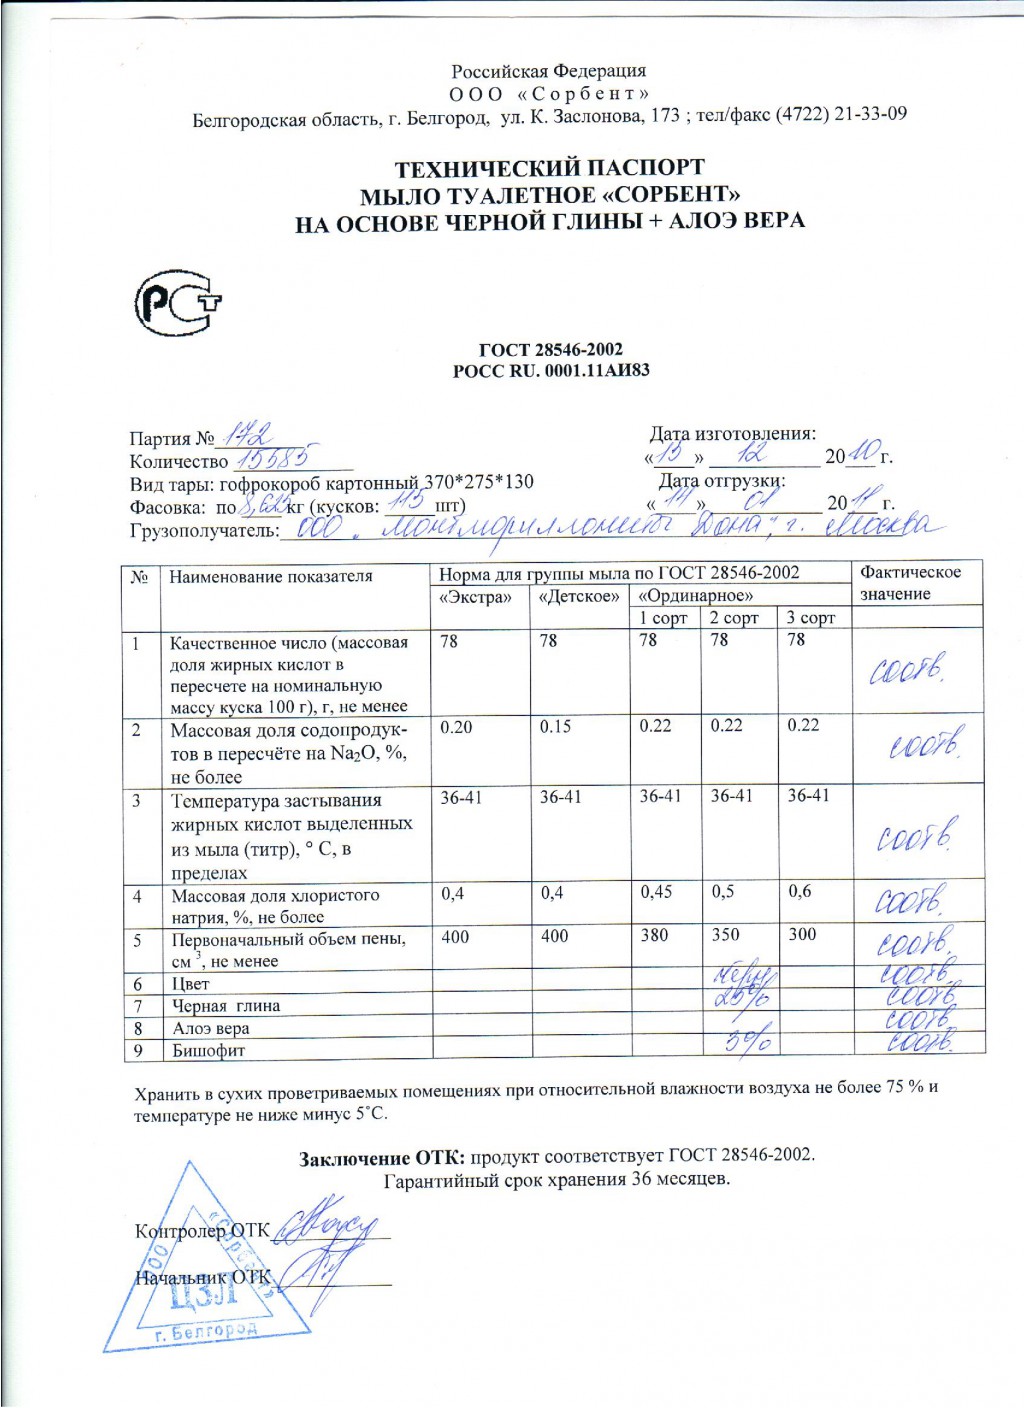 Российская Федерация
ООО «Сорбент»
Белгородская область, г. Белгород, ул. К. Заслонова, 173 ; тел/факс (4722) 21-33-09
ТЕХНИЧЕСКИЙ ПАСПОРТ
МЫЛО ТУАЛЕТНОЕ «СОРБЕНТ»
НА ОСНОВЕ ЧЕРНОЙ ГЛИНЫ + АЛОЭ ВЕРА
РСТ
ГОСТ 28546-2002
РОСС RU. 0001.11АИ83
Партия № 172 Дата изготовления:
Количество 15585 «15» 12 2010 г.
Вид тары: гофрокороб картонный 370*275*130 Дата отгрузки:
Фасовка: по 8,625 кг (кусков: 115 шт) «11» 01 2011 г.
Грузополучатель: ООО „Монтмориллониты Дона", г. Москва
№ Наименование показателя Норма для группы мыла по ГОСТ 28546-2002 Фактическое значение
«Экстра» «Детское» «Ординарное»
1 сорт 2 сорт 3 сорт
1 Качественное число (массовая 78 78 78 78 78
доля жирных кислот в соотв.
пересчете на номинальную
массу куска 100 г), г, не менее
2 Массовая доля содопродук- 0.20 0.15 0.22 0.22 0.22 соотв.
тов в пересчёте на Na₂O, %,
не более
3 Температура застывания 36-41 36-41 36-41 36-41 36-41
жирных кислот выделенных соотв.
из мыла (титр), ° С, в
пределах
4 Массовая доля хлористого 0,4 0,4 0,45 0,5 0,6 соотв.
натрия, %, не более
5 Первоначальный объем пены, 400 400 380 350 300 соотв.
см ³, не менее
6 Цвет черн соотв.
7 Черная глина 25% соотв.
8 Алоэ вера соотв.
9 Бишофит 3% соотв.
Хранить в сухих проветриваемых помещениях при относительной влажности воздуха не более 75 % и
температуре не ниже минус 5˚С.
Заключение ОТК: продукт соответствует ГОСТ 28546-2002.
Гарантийный срок хранения 36 месяцев.
Контролер ОТК
Начальник ОТК
ООО «Сорбент»
ЦЗЛ
г. Белгород